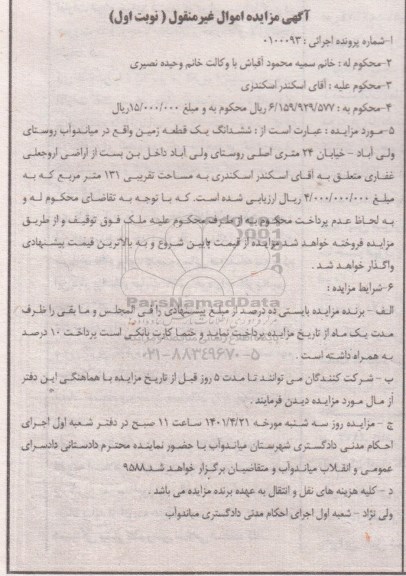 آگهی مزایده اموال غیرمنقول ( نوبت اول)
۱-شماره پرونده اجرائی : ۰۱۰۰۰۹۳
۲-محکوم له : خانم سمیه محمود آقباش با وکالت خانم وحیده نصیری
۳-محکوم علیه : آقای اسکندر اسکندری
۴-محکوم به : ۶/۱۵۹/۹۲۹/۵۷۷ ریال محکوم به و مبلغ ۱۵/۰۰۰/۰۰۰ریال
۵-مورد مزایده : عبارت است از : ششدانگ یک قطعه زمین واقع در میاندوآب روستای
ولی آباد - خیابان ۲۴ متری اصلی روستای ولی آباد داخل بن بست از آراضی اروجعلی
غفاری متعلق به آقای اسکندر اسکندری به مساحت تقریبی ۱۳۱ متر مربع که به
مبلغ ۴/۰۰۰/۰۰۰/۰۰۰ ریال ارزیابی شده است. که با توجه به تقاضای محکوم له و
به لحاظ عدم پرداخت محکوم به از طرف محکوم علیه ملک فوق توقیف و از طریق
مزایده فروخته خواهد شد مزایده از قیمت پایین شروع و به بالاترین قیمت پیشنهادی
واگذار خواهد شد .
۶-شرایط مزایده :
الف - برنده مزایده بایستی ده درصد از مبلغ پیشنهادی را فی المجلس و ما بقی را ظرف
مدت یک ماه از تاریخ مزایده پرداخت نماید و حتما کارت بانکی است پرداخت ۱۰ درصد
به همراه داشته است .
ب - شرکت کنندگان می توانند تا مدت ۵ روز قبل از تاریخ مزایده با هماهنگی این دفتر
از مال مورد مزایده دیدن فرمایند .
ج - مزایده روز سه شنبه مورخه ۱۴۰۱/۴/۲۱ ساعت ۱۱ صبح در دفتر شعبه اول اجرای
احکام مدنی دادگستری شهرستان میاندوآب با حضور نماینده محترم دادستانی دادسرای
عمومی و انقلاب میاندوآب و متقاضیان برگزار خواهد شد.۹۵۸۸
د - کلیه هزینه های نقل و انتقال به عهده برنده مزایده می باشد .
ولی نژاد - شعبه اول اجرای احکام مدنی دادگستری میاندوآب
ParsNamadData
۰۲۱-۸۸۳۴۹۶۷۰-۵